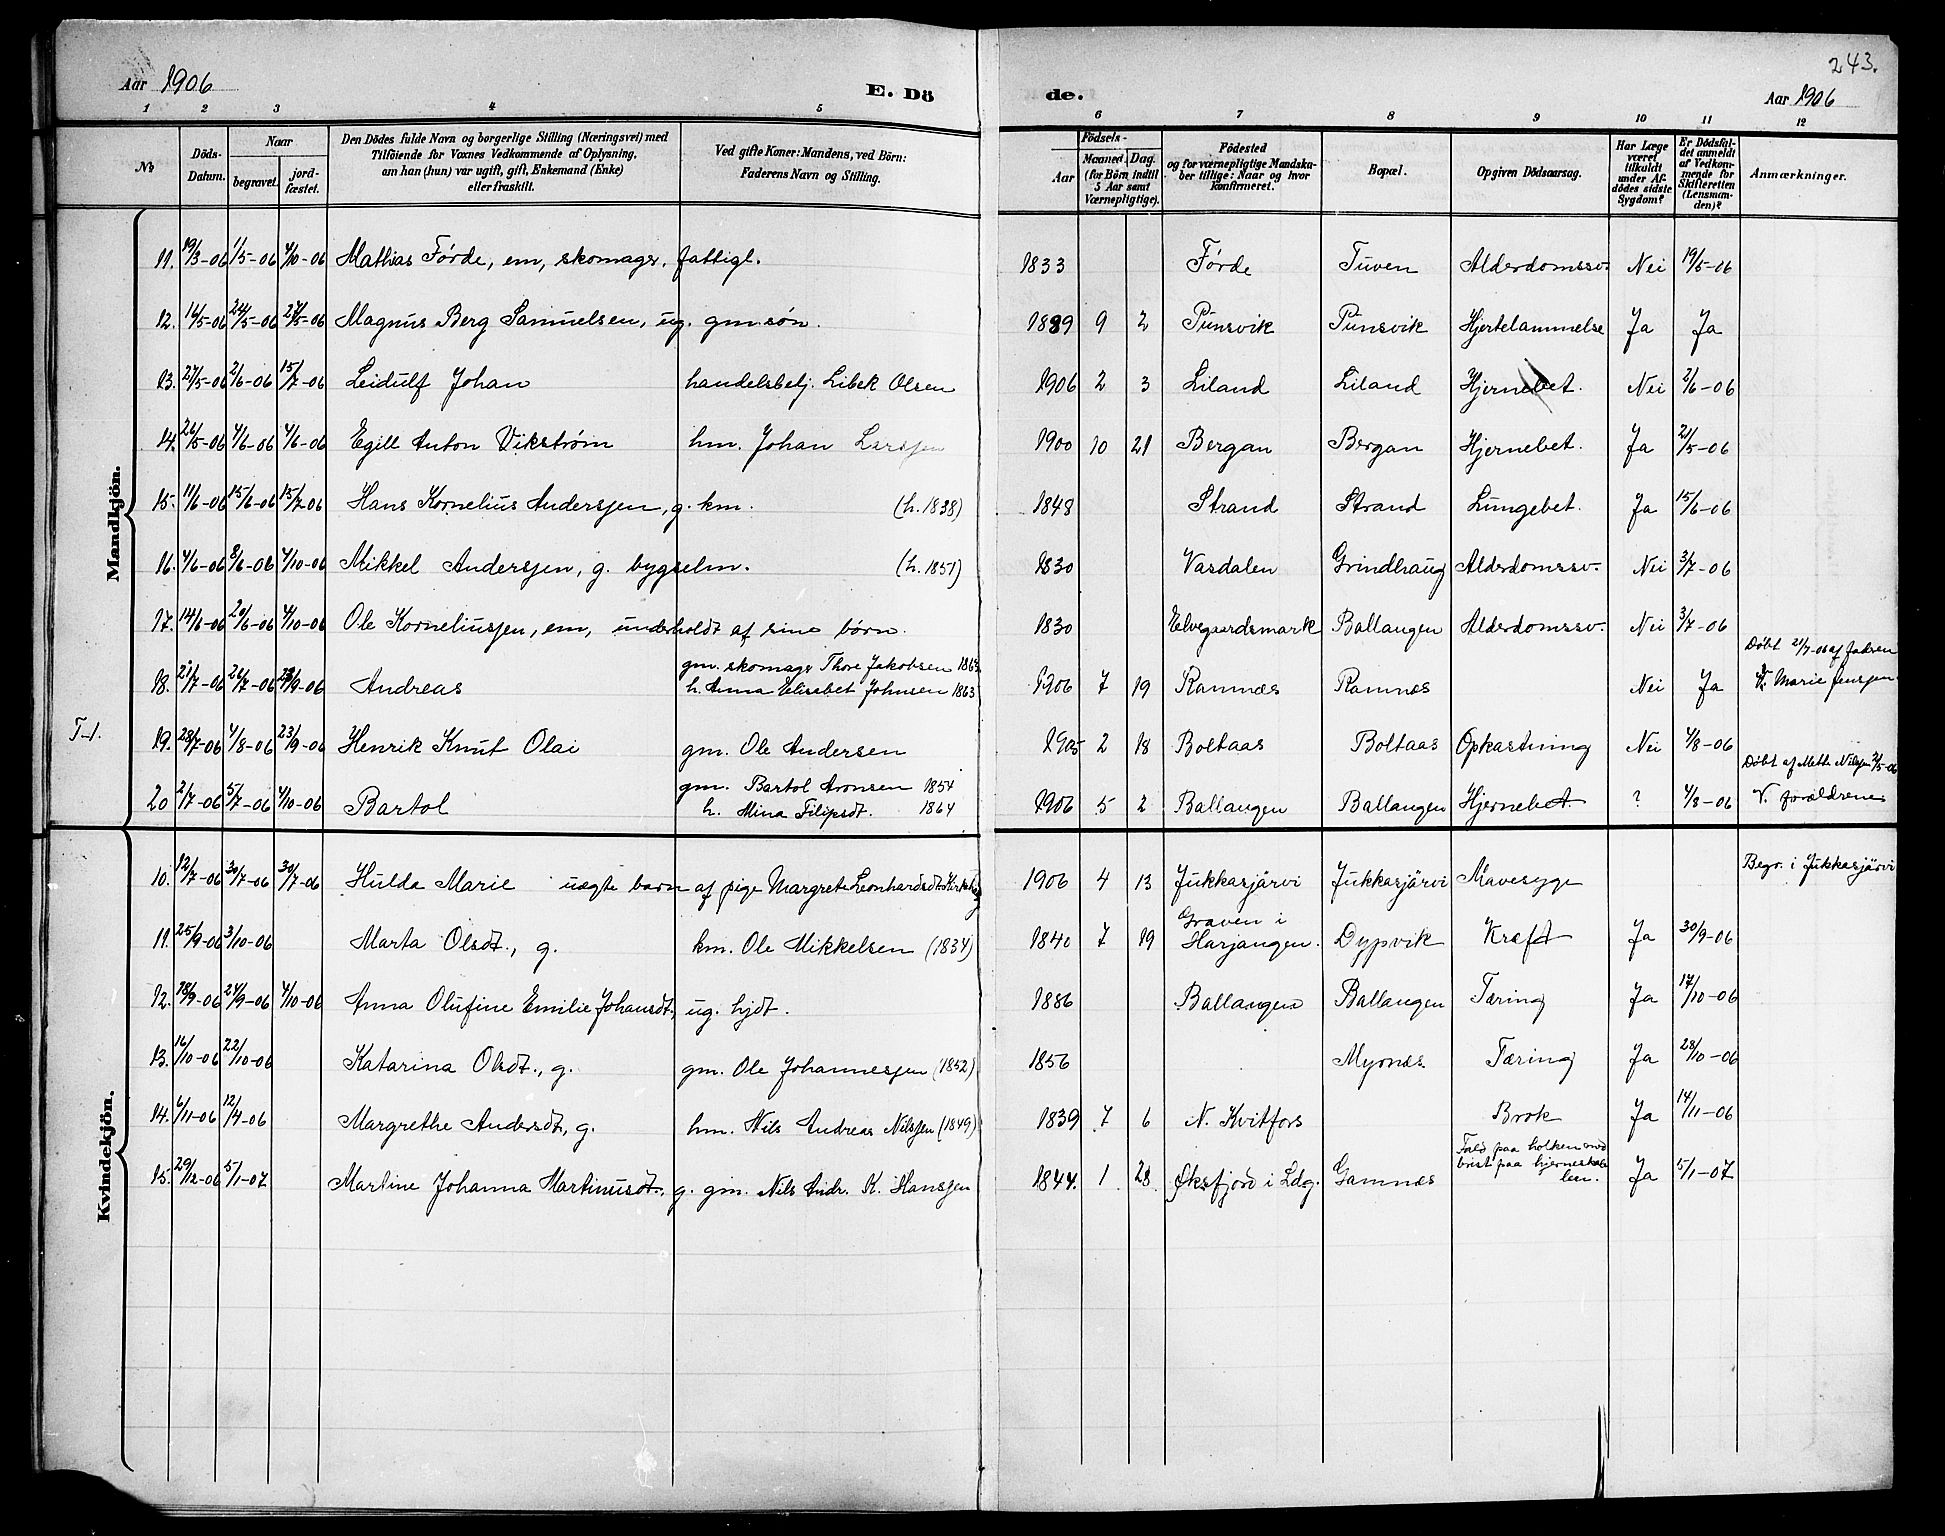 243.
Aar 1906 E. Dö de. Aar 1906
1 2 3 4 5 6 7 8 9 10 11 12
No Döds-Datum. Naar begravet. jord-fæstet. Den Dödes fulde Navn og borgerlige Stilling (Næringsvei) med Tilföiende for Voxnes Vedkommende af Oplysning, om han (hun) var ugift, gift, Enkemand (Enke) eller fraskilt. Ved gifte Koner: Mandens, ved Börn: Faderens Navn og Stilling. Födsels- Aar Maaned. Dag. (for Börn indtil 5 Aar samt Værnepligtige). Födested og for værnepligtige Mandskaber tillige: Naar og hvor konfirmeret. Bopæl. Opgiven Dödsaarsag. Har Læge været tilkaldt under Afdödes sidste Sygdom? Er Dödsfaldet anmeldt af Vedkommende for Skifteretten (Lensmanden)? Anmærkninger.
Mandkjön.
11. 19/3-06 1/5-06 4/10-06 Mathias Førde, em, skomager, fattigl. 1833 Førde Tuven Alderdomssv. Nei 19/5-06
12. 16/5-06 24/5-06 27/5-06 Magnus Berg Samuelsen, ug. gmsøn. 1889 9 2 Punsvik Punsvik Hjertelammelse Ja Ja
13. 27/5-06 2/6-06 15/7-06 Leidulf Johan handelsbetj. Libek Olsen 1906 2 3 Liland Liland Hjernebet. Nei 2/6-06
14. 26/5-06 4/6-06 4/6-06 Egill Anton Vikstrøm hm. Johan Larssen 1900 10 21 Bergan Bergan Hjernebet. Ja 21/5-06
15. 11/6-06 15/6-06 15/7-06 Hans Kornelius Anderssen, g. km. (h. 1838) 1848 Strand Strand Lungebet. Ja 15/6-06
16. 4/6-06 8/6-06 4/10-06 Mikkel Anderssen, g. bygselm. (h. 1851) 1830 Vasdalen Grindhaug Alderdomssv. Nei 3/7-06
17. 14/6-06 20/6-06 4/10-06 Ole Korneliussen, em, underholdt af sine børn. 1830 Elvegaardsmark Ballangen Alderdomssv. Nei 3/7-06
gm. skomager Thore Jakobsen 1863 Døbt 21/7-06 af Jakten
18. 21/7-06 26/7-06 23/9-06 Andreas h. Anna Elisabet Johnsen 1863 1906 7 19 Ramnæs Ramnæs Nei Ja V. Marie Jenssen
T-1. 19. 28/7-06 4/8-06 23/9-06 Henrik Knut Olai gm. Ole Andersen 1905 2 18 Boltaas Boltaas Opkastning Nei 4/8-06
gm. Bartol Aronsen 1854 Døbt af Meth. Nilssen 2/5-06
20 2/7-06 5/7-06 4/10-06 Bartol h. Mina Filipsdt. 1864 1906 5 2 Ballangen Ballangen Hjernebet ? 4/8-06 V. forældrene
Kvindekjön.
10. 12/7-06 30/7-06 30/7-06 Hulda Marie uægte barn af pige Margrete Leonhardsdt 1906 4 13 Jukkasjärvi Jukkasjärvi Mavesyge Begr. i Jukkasjärvi
11. 25/9-06 3/10-06 Marta Olsdt., g. km. Ole Mikkelsen (1834) 1840 7 19 Graven i Harjangen. Dypvik Kræft Ja 30/9-06
12. 18/9-06 24/9-06 4/10-06 Anna Olufine Emilie Johansdt., ug. hjdt. 1886 Ballangen Ballangen Tæring Ja 17/10-06
13. 16/10-06 22/10-06 Katarina Olsdt., g. gm. Ole Johannessen (1852) 1856 Myrnæs Tæring Ja 28/10-06
14. 6/11-06 12/4-06 Margrethe Andersdt., g. hm. Nils Andreas Nilssen (1849) 1839 7 6 N. Kvitfors Brok Ja 14/11-06
15. 29/12-06 5/1-07 Martine Johanna Martinusdt., g. gm. Nils Andr. K. Hanssen 1844. 1 28 Øksfjord i Ldg. Gamnæs Fald paa holken med brist paa hjerneskallen. Ja 5/1-07